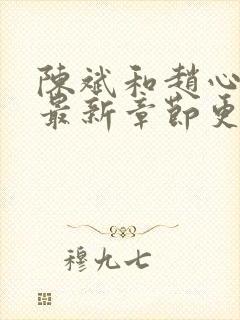 陳斌和趙心
最新章節更
穆九七